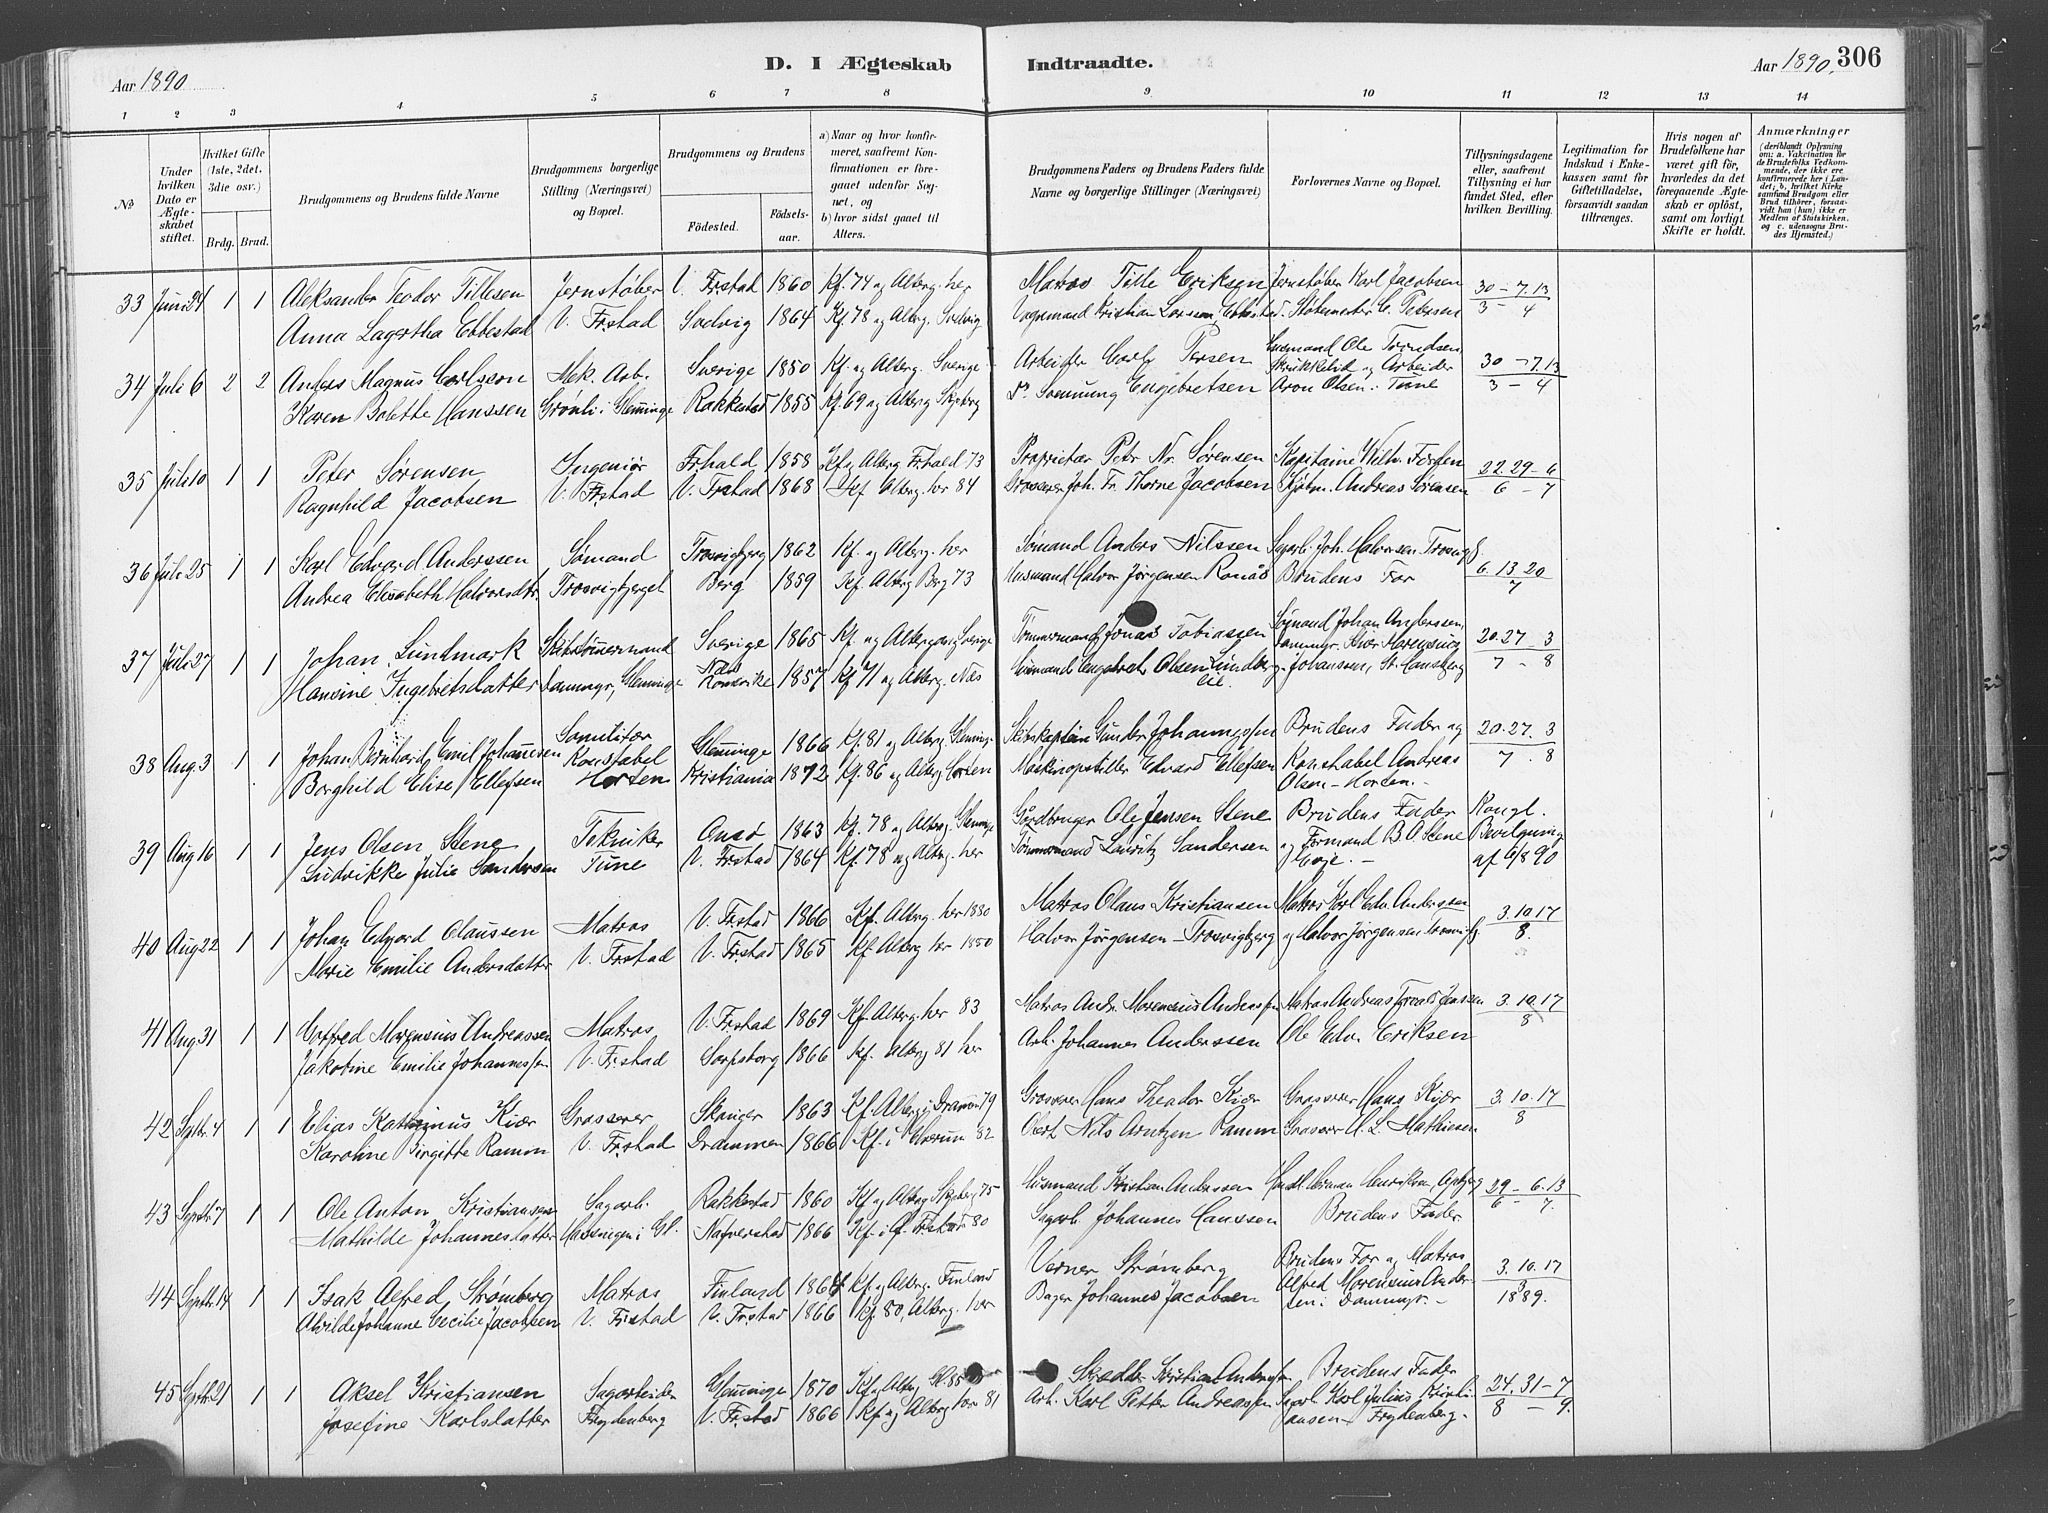 Aar 1890
D. I Ægteskab
Indtraadte.
Aar 1890. 306
1 2 3 4 5 6 7 8 9 10 11 12 13 14
No
Under hvilken Dato er Ægteskabet stiftet.
Hvilket Gifte (1ste, 2det. 3die osv.)
Brdg. Brud.
Brudgommens og Brudens fulde Navne
Brudgommens borgerlige Stilling (Næringsvei) og Bopæl.
Brudgommens og Brudens
Fødested. Fødselsaar.
a) Naar og hvor konfirmeret, saafremt Konfirmationen er foregaaet udenfor Sognet, og
b) hvor sidst gaaet til Alters.
Brudgommens Faders og Brudens Faders fulde Navne og borgerlige Stillinger (Næringsvei)
Forlovernes Navne og Bopæl.
Tillysningsdagene eller, saafremt Tillysning ei har fundet Sted, efter hvilken Bevilling.
Legitimation for Indskud i Enkekassen samt for Giftetilladelse, forsaavidt saadan tiltrænges.
Hvis nogen af Brudefolkene har været gift før, hvorledes da det foregaaende Ægteskab er opløst, samt om lovligt Skifte er holdt.
Anmærkninger (deriblandt Oplysning om: a. Vakcination for de Brudefolks Vedkommende, der ikke ere konfirmerede her i Landet; b, hvilket Kirkesamfund Brudgom eller Brud tilhører, forsaavidt han (hun) ikke er Medlem af Statskirken. og c. udensogns Brudes Hjemsted.)
33 Juni 24 1 1 Aleksander Teodor Tillesen Jernstøber V. Frstad 1860 Kf. 74 og Alterg. her Matros Tille Eriksen Jernstøber Karl Jacobsen 30 – 7. 13
Anna Lagertha Ebbestad V. Frstad Sodvig 1864 Kf 78 og Alterg. Kristian Larsen Ebbestad C. Petersen 3 – 4
34 Juli 6 2 2 Anders Magnus Carlsson Mek. Arb. Sverige 1850 Kf. og Alterg. Sverige Arbeider Carl Persen Husmand Ole Trondsen, Skrukkelid og Arbeider 30 – 7. 13
Karen Bolette Hanssen Grønli i Glemminge Rakkestad 1855 Kf. 69 og Alterg Skjeberg Do Engebretsen Aron Olsen i Tune 3 – 4
35 Juli 10 1 1 Peter Sørensen Ingeniør Frhald 1858 Kf og Alterg Frhald 73 Proprietær Peter Nr. Sørensen Kapitaine Wilh. 22. 29 – 6
Ragnhild Jacobsen V. Frstad V. Frstad 1868 Kf. Alterg. her 84 Grosserer Joh. Fr. Thorne Jacobsen Kjøbm. Andreas Sørensen 6 – 7
36 Juli 25 1 1 Karl Edvard Anderssen Sømand Trosvigbjerg 1862 Kf. og Alterg. her Sømand Anders Nilssen Sagarb. Joh. Halvorsen Trosvigb. 6. 13. 20
Andrea Elisabeth Halvorsdtr. Trosvigbjerget Berg 1859 Kf. Alterg Berg 73 Husmand Halvor Jørgensen Bonås Brudens Far 7
37 Juli 27 1 1 Johan Lundmark Skibstømmermand Sverige 1865 Kf. og Alterg Sverige Tømmermand Jonas Tobiassen Sømand Johan Anderssen, 20. 27 – 3
Hansine Ingebretsdatter Dammyr, Glemminge Næs Romerike 1857 Kf 71 og Alterg. Næs Husmand Engebret Olsen Johansen, St. Hansberg 7 – 8
38 Aug. 3 1 1 Johan Bernhard Emil Johannesen Konstabel Glemminge 1866 Kf. 81 og Alterg. Glemminge Skibskaptein Gunder Johannessen Brudens Fader og 20. 27. 3
Borghild Elise Ellefsen Horten Kristiania 1872 Kf. 86 og Alterg Horten Maskinopstiller Edvard Ellefsen Konstabel Andreas Olsen – Horten. – 7 . 8
39 Aug 16 1 1 Jens Olsen Stene Tekniker Onsø 1863 Kf. 78 og Alterg. Glemminge Gårdbruger Ole Jensen Stene Brudens Fader Kongl.
Ludvikke Julie Sandersen Tune V. Frstad 1864 Kf. 78 og Alterg. her Tømmermand Lauritz Sandersen og Formand B. O. Stene Bevilgning af 6/8 90
40 Aug 22 1 1 Johan Edvard Olaussen Matros V. Frstad 1866 Kf. Alterg. her 1880 Matros Olaus Kristiansen Matros Karl Edv. Anderssen 3. 10. 17
Marie Emilie Andersdatter V. Frstad V. Frstad 1865 Kf Alterg her 1880 Halvor Jørgensen – Trosvigbjerg og Halvor Jørgensen 8.
41 Aug 31 1 1 Gotfred Morensius Andreassen Matros V. Frstad 1869 Kf. Alterg. her 83 Matros Andr. Morensius Andreassen Matros Andreas Jenssen 3. 10. 17
Jakobine Emilie Johannessen V. Frstad Sarpsborg 1866 Kf. Alterg 81 her Arb. Johannes Anderssen Ole Edv. Eriksen 8
42 Septbr. 4 1 1 Elias Kiær Grosserer Stange 1863 Kf. Alterg i Drammen 79 Grosserer Hans Theodor Kiær Grosserer Hans Kiær 3. 10. 17
Karoline Birgitte Ramm V. Frstad Drammen 1866 Kf. i Elverum 82 Oberst Nils Arntzen Ramm Grosserer H. L. Mathiesen 8
43 Septbr. 7 1 1 Ole Anton Kristiansen Sagarb. Rakkestad 1860 Kf og Alterg Skjeberg 75 Husmand Kristian Anderssen Herman Henriksen, 29 – 6. 13
Mathilde Johannesdatter i Gl. Nafverstad 1866 Kf. i Gl. Frstad 80 Sagarb. Johannes Hanssen Brudens Fader 6 – 7.
44 Septbr. 14 1 1 Isak Alfred Strømberg Matros Finland 1864 Kf. og Alterg. Finland Verner Strømberg Brudens Far og Matros 3. 10. 17
Alvilde Johanne Cecilie Jacobsen V. Frstad V. Frstad 1866 Kf. 80, Alterg. her Bager Johannes Jacobsen Alfred Morensius Andersen i Dammyr. – 1889.
45 Septbr 21 1 1 Aksel Kristiansen Sagarbeider Glemminge 1870 Kf og Alterg Gl. 85 Skrædder Kristian Brudens Fader 24. 31 – 7
Josefine Karlsdatter Frydenberg V. Frstad 1866 Kf og Alterg her 81 Arb. Karl Petter Andreassen Sagarb. Karl Julius Kristiansen – Frydenberg. – 8 – 9.